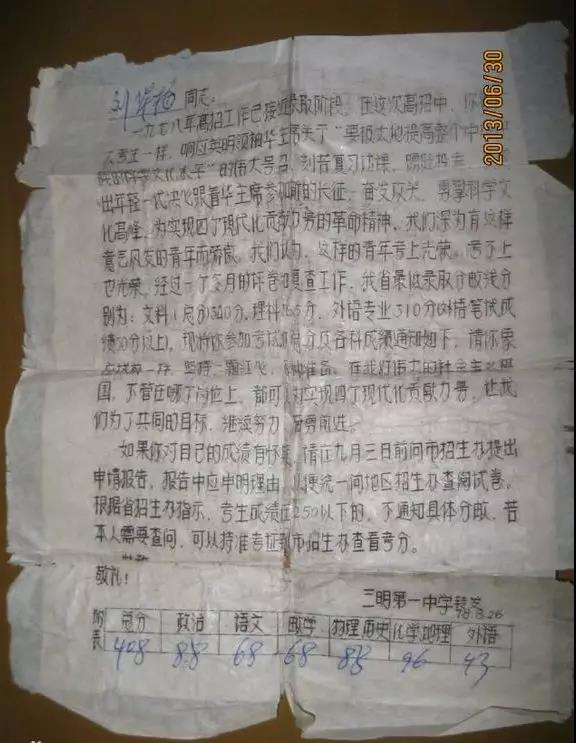 刘 同志:
一九七八年高招工作已接近录取阶段。在这次高招中,你
考生一样,响应英明领袖华主席关于“要极大地提高整个中
科学文化水平”的伟大号召,刻苦复习功课,踊跃报考,
出年轻一代决心跟着华主席参加新的长征,奋发攻关,勇攀科学文
化高峰,为实现四个现代化贡献力量的革命精神。我们深为有这样
意气风发的青年而骄傲。我们认为,这样的青年考上光荣,考不上
也光荣。经过一个多月的评卷和复查工作,我省最低录取分数线分
别为:文科(总分)340分,理科 分,外语专业310分(外语笔试成
绩50分以上)。现将你参加考试的总分及各科成绩通知如下,请你象
一样,坚持一颗红心, 准备。在我们伟大的社会主义祖
国,不管在哪个岗位上,都可 对实现四个现代化贡献力量,让我
们为了共同的目标,继续努力 奋勇前进。
如果你对自己的成绩有怀疑,请在九月三日前向市招生办提出
申请报告,报告中应申明理由,以便统一向地区招生办查阅试卷。
根据省招生办指示,考生成绩在250以下的,不通知具体分数,若
本人需要查问,可以持准考证到市招生办查看考分。
敬礼!
三明第一中学转发
78.8.26
附表 总分 政治 语文 数学 物理 历史 化学 地理 外语
408 88 68 68 88 96 43
2013/06/30